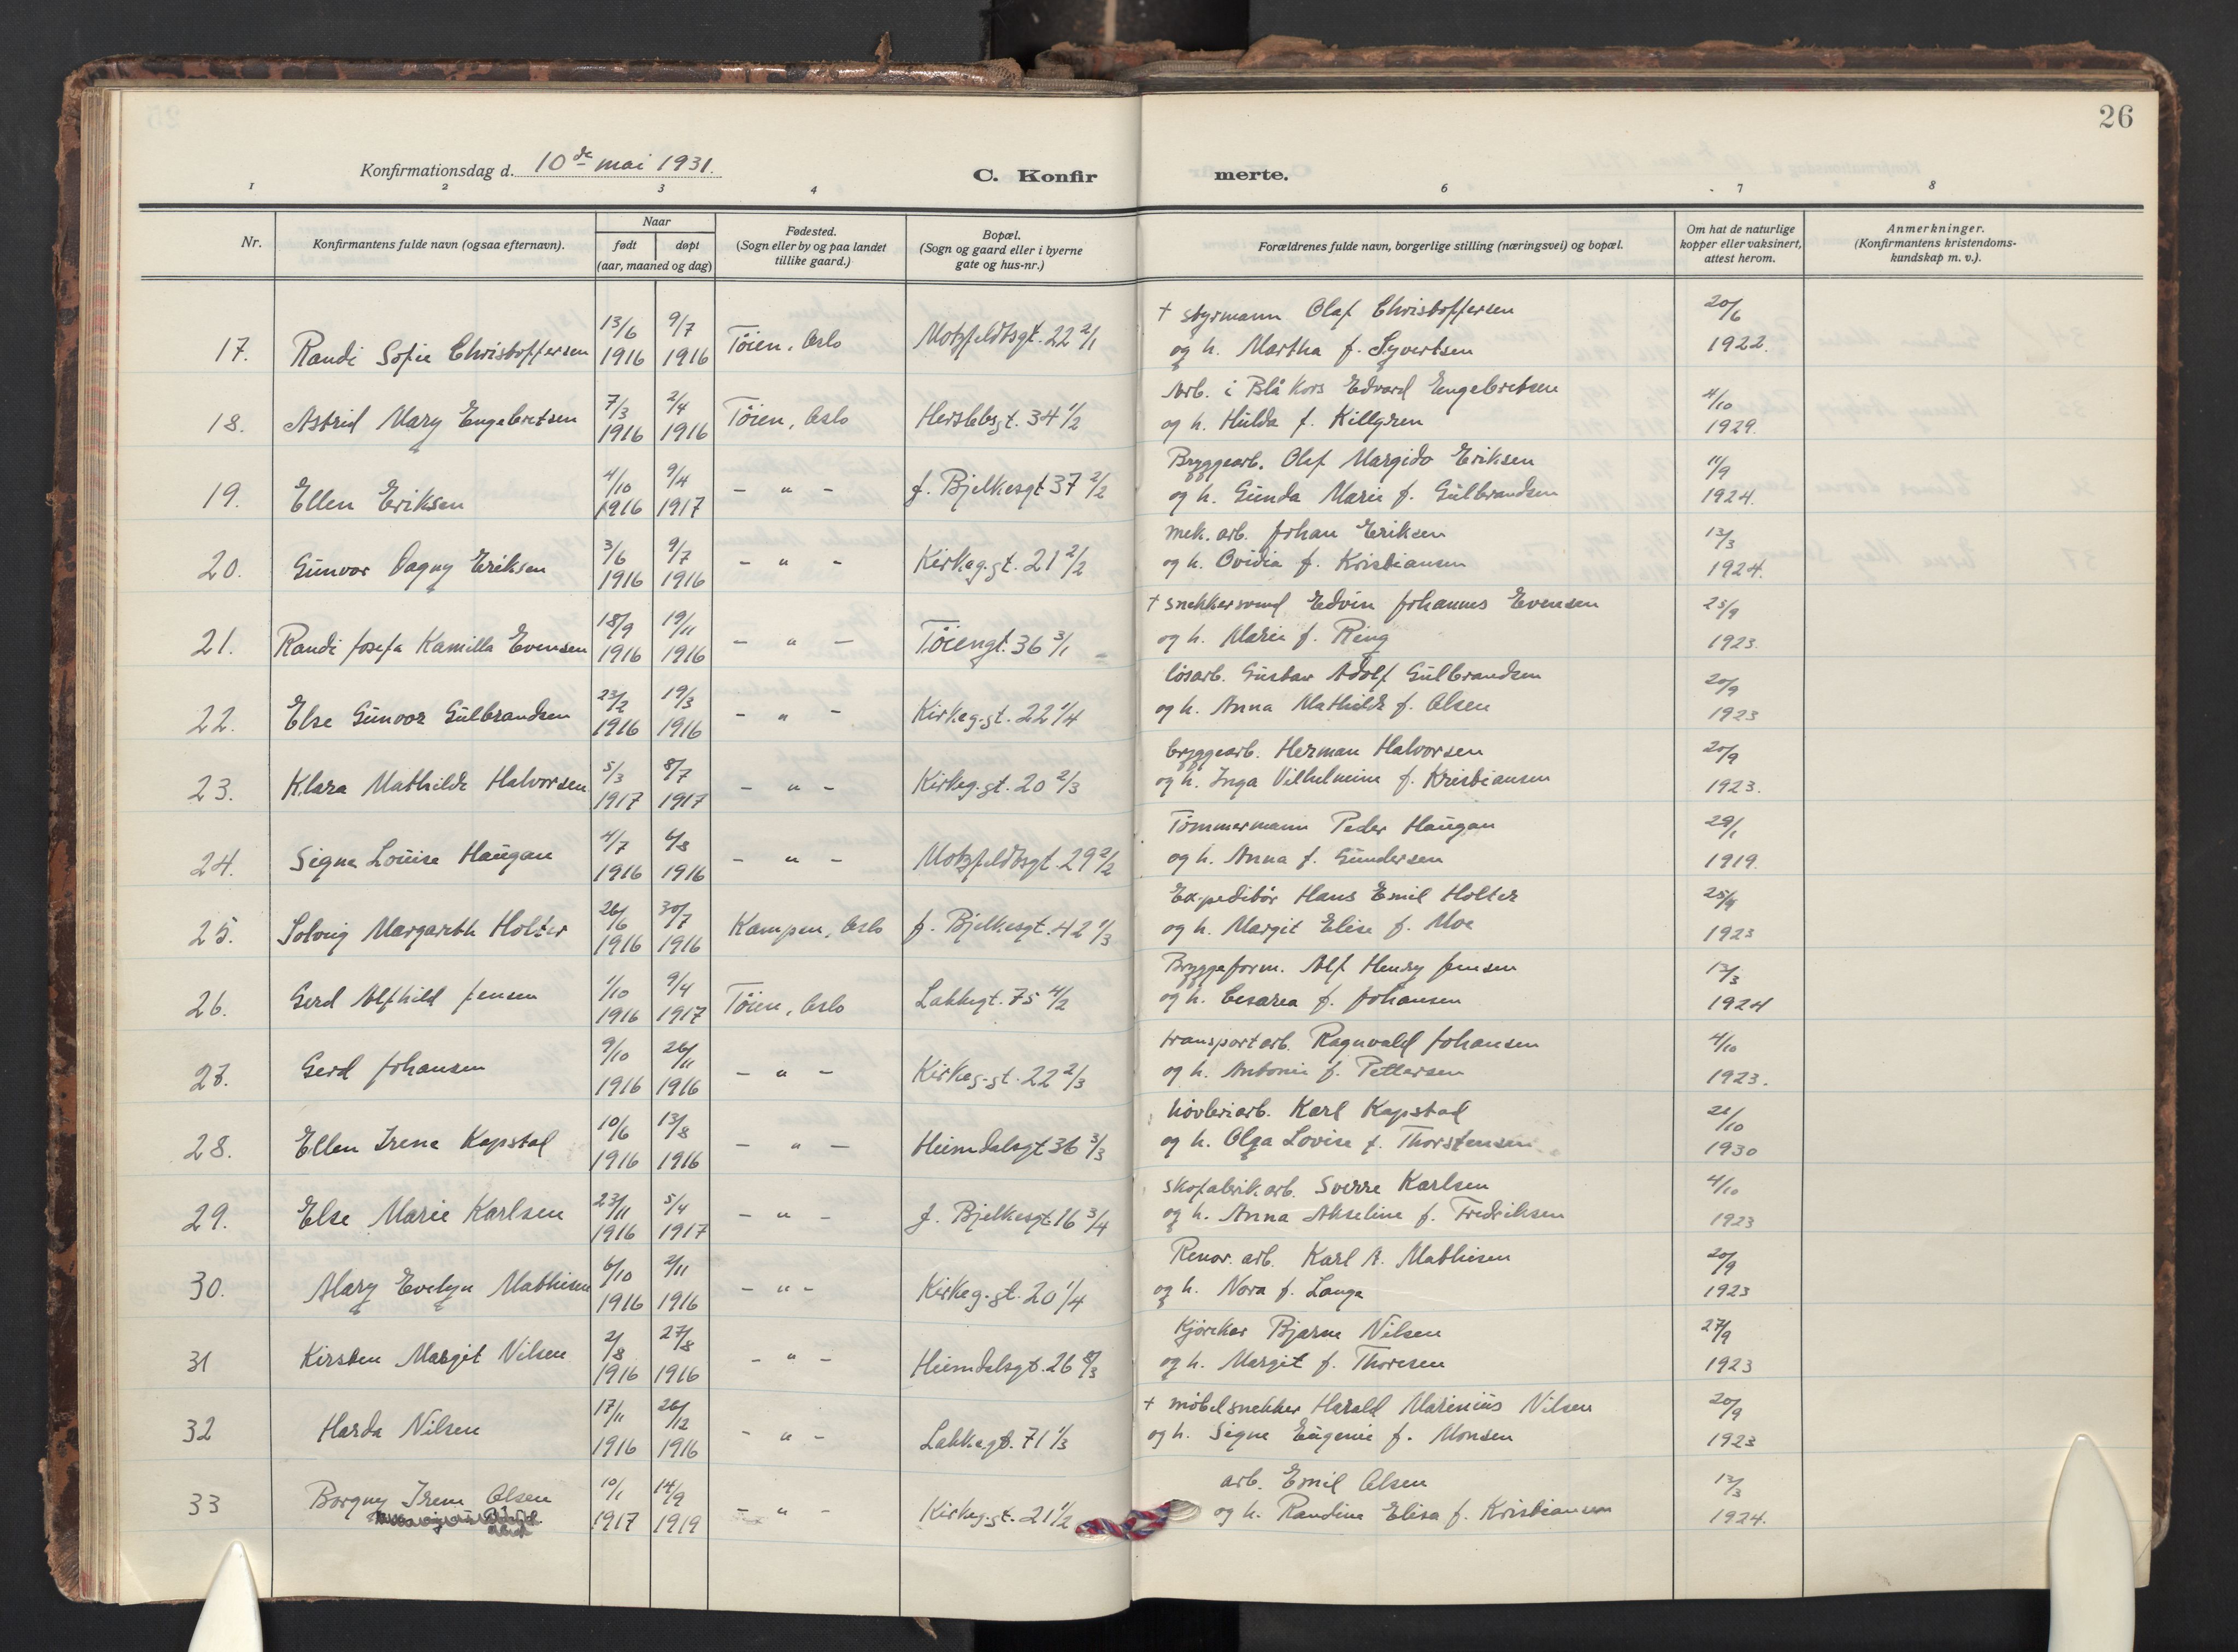 26
Konfirmationsdag d. 10de mai 1931.
C. Konfirmerte.
1 2 3 4 6 7 8
Nr.
Konfirmantens fulde navn (ogsaa efternavn).
Naar
født
døpt
(aar, maaned og dag)
Fødested.
(Sogn eller by og paa landet
tillike gaard.)
Bopæl.
(Sogn og gaard eller i byerne
gate og hus-nr.)
Forældrenes fulde navn, borgerlige stilling (næringsvei) og bopæl.
Om hat de naturlige
kopper eller vaksinert,
attest herom.
Anmerkninger.
(Konfirmantens kristendoms-
kundskap m. v.).
13/6 9/7 + styrmann Olaf Christoffersen 20/6
17. Randi Sofie Christoffersen 1916 1916 Töien, Oslo Motzfeldtsgt. 22 2/1 og h. Martha f. Syvertsen 1922.
7/3 2/4 Arb. i Blå Kors Edvard Engebretsen 4/10
18. Astrid Mary Engebretsen 1916 1916 Töien, Oslo Herslebsgt. 34 1/2 og h. Hulda f. Killgren 1929.
4/10 9/4 Bryggearb. Olaf Margido Eriksen 11/9
19. Ellen Eriksen 1916 1917 – " – J. Bjelkesgt 37 2/2 og h. Gunda Marie f. Gulbrandsen 1924.
3/6 9/7 mek. arb. Johan Eriksen 13/3
20. Gunvor Dagny Eriksen 1916 1916 – " – Kirkeg.gt. 21 2/2 og h. Ovidia f. Kristiansen 1924.
18/9 19/11 + snekkersvend Edvin Johannes Evensen 25/9
21. Randi Josefa Kamilla Evensen 1916 1916 – " – Töiengt. 36 3/1 og h. Marie f. Ring 1923.
23/2 19/3 lösarb. Gustav Adolf Gulbrandsen 20/9
22. Else Gunvor Gulbrandsen 1916 1916 – " – Kirkeg.gt. 22 1/4 og h. Anna Mathilde f. Olsen 1923
5/3 8/7 bryggearb. Herman Halvorsen 20/9
23. Klara Mathilde Halvorsen 1917 1917 – " – Kirkeg.gt. 20 2/3 og h. Inga Vilhelmine f. Kristiansen 1923.
4/7 6/8 Tömmermann Peder Haugan 29/1
24. Signe Louise Haugan 1916 1916 – " – Motzfeldtsgt. 29 2/2 og h. Anna f. Gundersen 1919.
26/6 30/7 Expeditör Hans Emil Holter 25/9
25. Solveig Margareth Holter 1916 1916 Kampen, Oslo J. Bjelkesgt. 42 1/3 og h. Margit Elise f. Moe 1923
1/10 9/4 Bryggeform. Alf Henry Jensen 13/3
26. Gerd Alfhild Jensen 1916 1917 Töien, Oslo Lakkegt. 75 4/2 og h. Cesarea f. Johansen 1924
9/10 26/11 transportarb. Ragnvald Johansen 4/10
27. Gerd Johansen 1916 1916 – " – Kirkeg.gt. 22 2/3 og h. Antonie f. Pettersen 1923.
10/6 13/8 hövleriarb. Karl Kapstad 21/10
28. Ellen Irene Kapstad 1916 1916 – " – Heimdalsgt 36 3/3 og h. Olga Lovise f. Thorstensen 1930
23/11 5/4 skofabrik.arb. Sverre Karlsen 4/10
29. Else Marie Karlsen 1916 1917 – " – J. Bjelkesgt 16 3/4 og h. Anna Akseline f. Fredriksen 1923
6/10 2/11 Renov. arb. Karl A. Mathisen 20/9
30. Mary Evelyn Mathisen 1916 1916 – " – Kirkeg.gt. 20 1/4 og h. Nora f. Lange 1923
2/8 27/8 Kjörekar Bjarne Nilsen 27/9
31 Kirsten Margit Nilsen 1916 1916 – " – Heimdalsgt. 26 8/3 og h. Margit f. Thoresen 1923
17/11 26/12 + möbelsnekker Harald Marinius Nilsen 20/9
32 Harda Nilsen 1916 1916 – " – Lakkegt. 71 1/3 og h. Signe Eugenie f. Monsen 1923
10/1 14/9 arb. Emil Olsen 13/3
33 Borgny Irene Olsen 1917 1919 – " – Kirkeg.gt. 21 1/2 og h. Randine Elisa f. Kristiansen 1924.